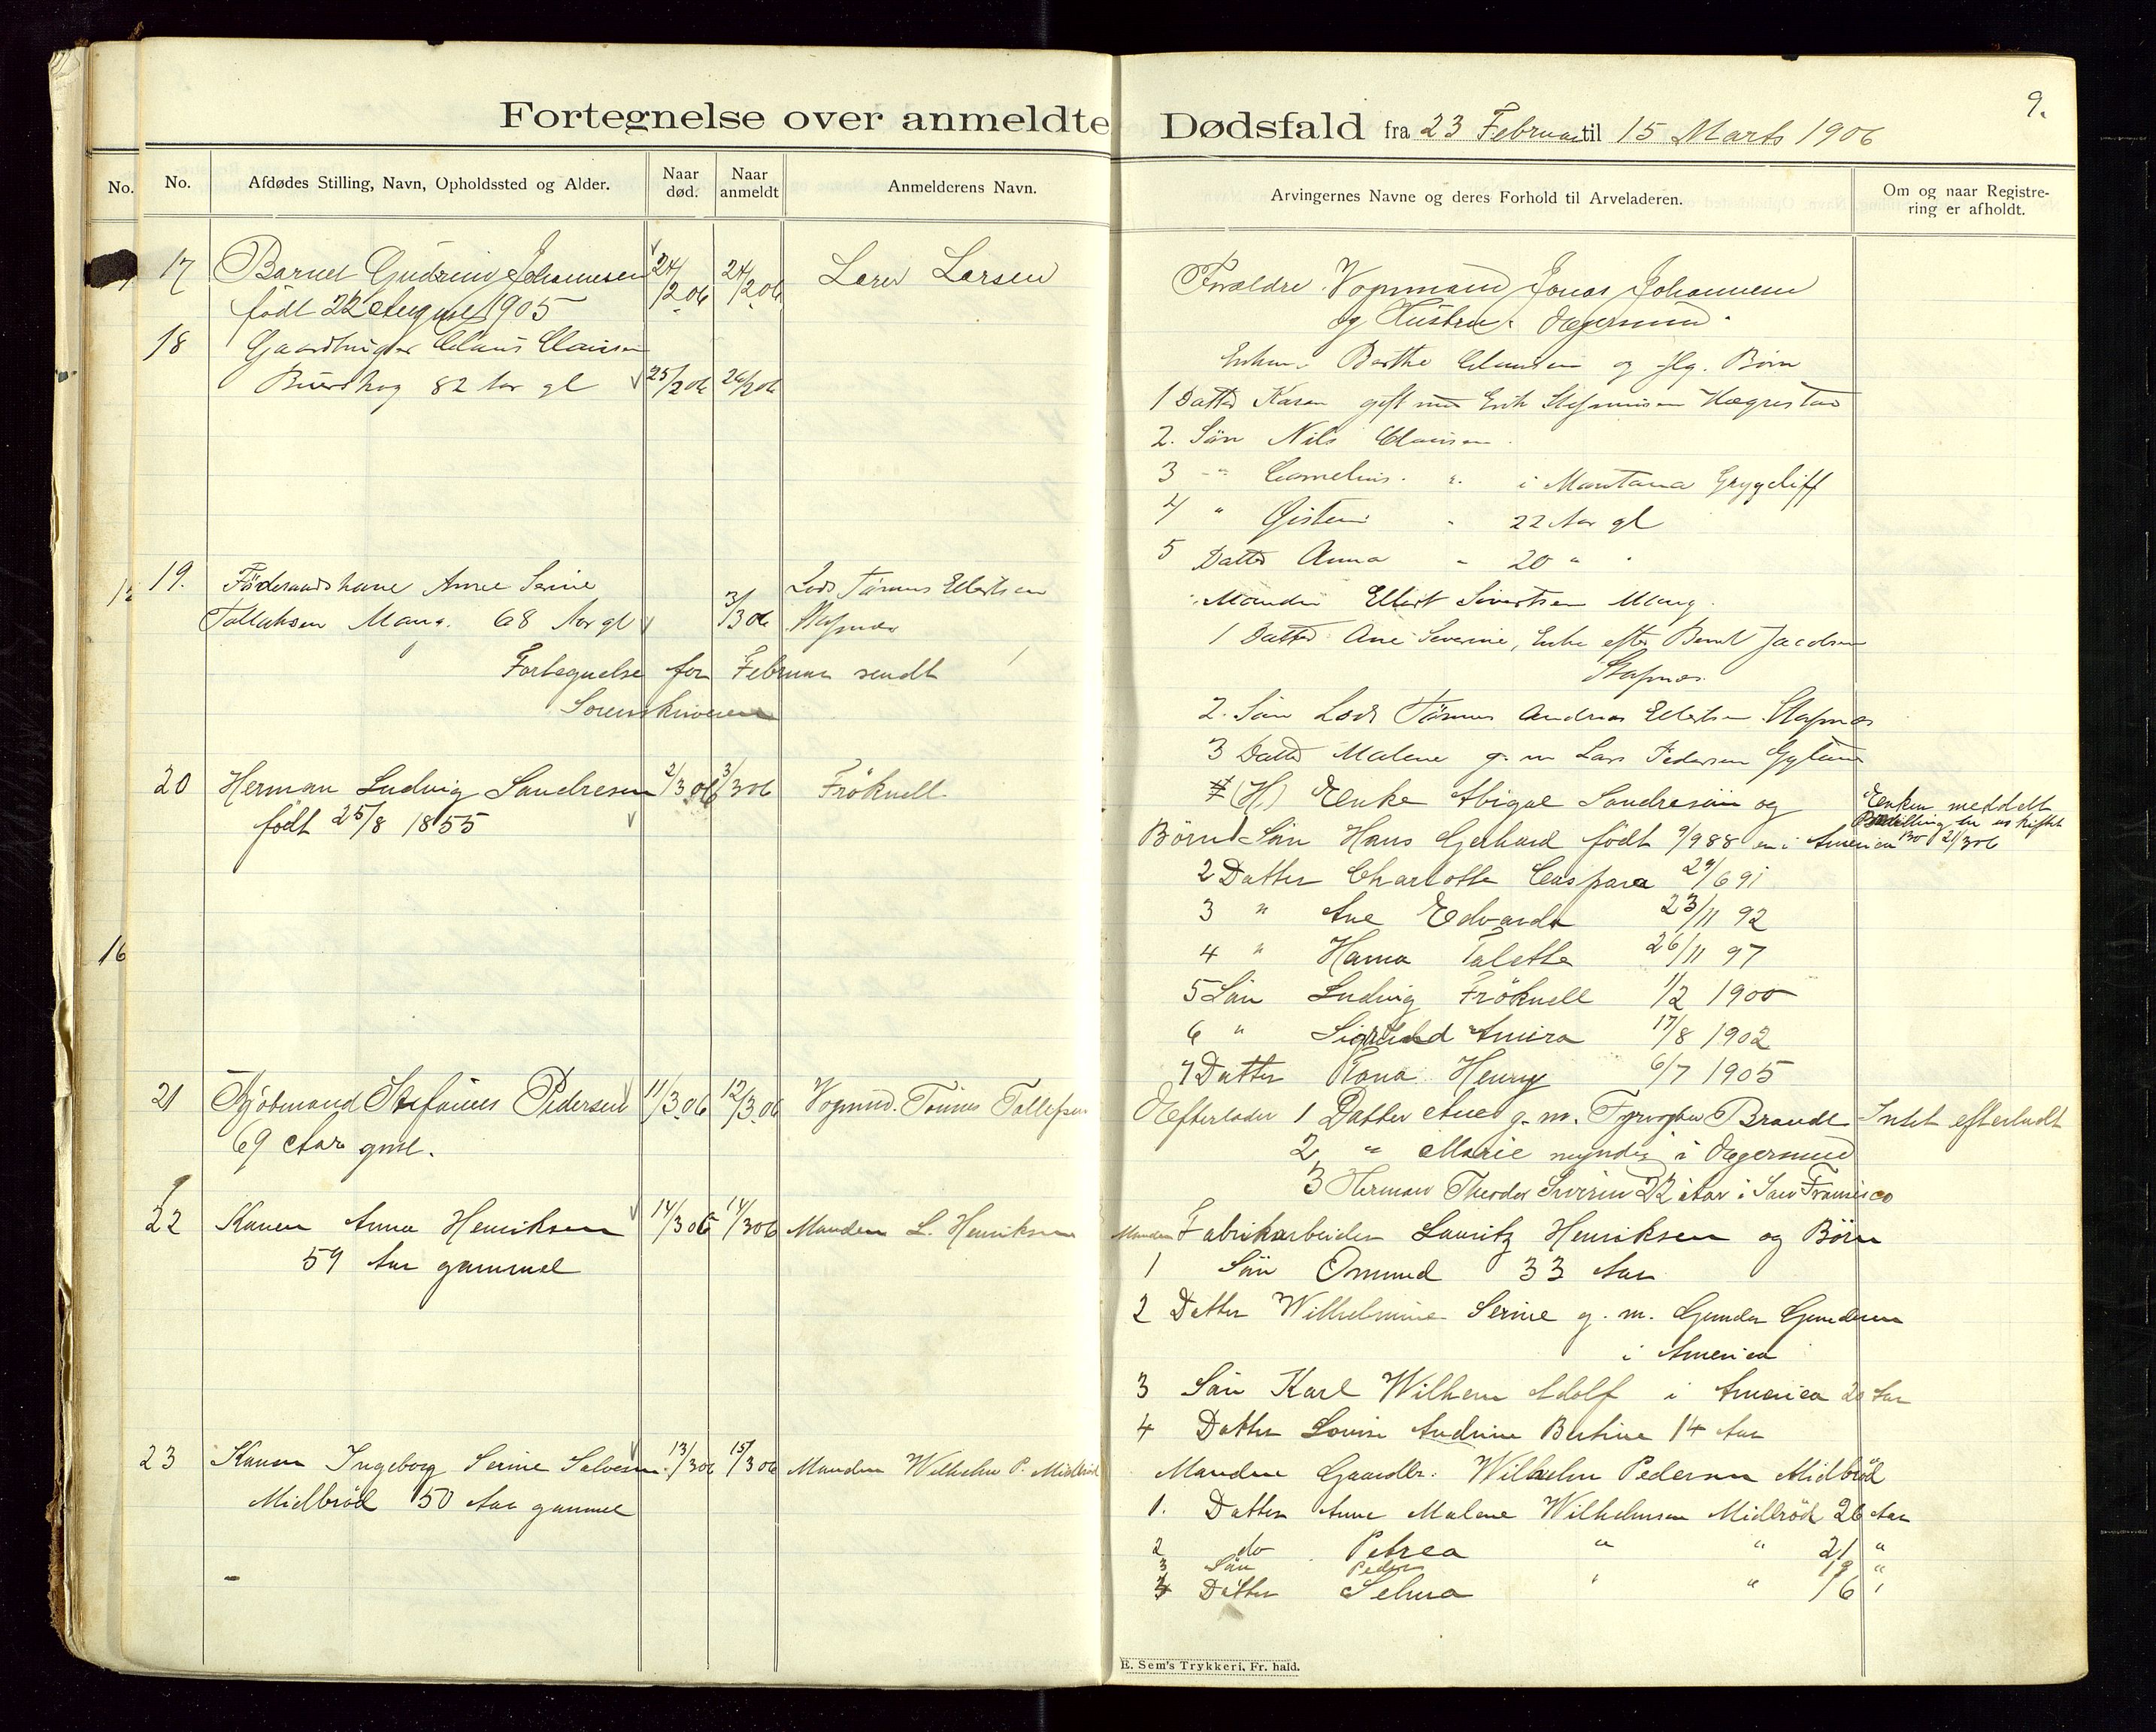 Fortegnelse over anmeldte Dødsfald fra 23 Februar til 15 Marts 1906
9.
No. No. Afdødes Stilling, Navn, Opholdssted og Alder. Naar død. Naar anmeldt Anmelderens Navn.
Arvingernes Navne og deres Forhold til Arveladeren. Om og naar Registrering er afholdt.
17 Barnet Gudrun Johannesen 24/2 06 24/2 06 Larer Larsen
født 22 August 1905
Forældre Vognmand Jonas Johannesen
og Hustru Egersund
18 Gaardbruger Claus Clausen
82 Aar gl 25/2 06 26/2 06
Enken Berthe Clausen og flg. Børn
1 Datter Karen gift med Erik Hegrestad
2. Sön Nils Clausen
3 " Cornelius " i Montana
4 " " 22 Aar gl
5 Datter Anna " 20 "
19. Föderaadskone Anne Serine Lods Tönnes Ellertsen
68 Aar gl 3/3 06 Stapnes
Manden Ellert Sivertsen Mong
1 Datter Ane Severine, Enke efter Bernt Jacobsen
Stapnes
Fortegnelse for Februar sendt
Sorenskriveren
2. Sön Lods Tönnes Andreas Ellertsen Stapnes
3 Datter Malene g. m Lars Pedersen
20 Herman Ludvig Sandresen 2/3 06 3/3 06 Fröknell
født 25/8 1855
(H) Enke Abigael Sandresen og
Enken meddelt
Bevilling
Bo 21/3 06
Börn 1 Sön Hans Gerhard født 9/9 88 en i America
2 Datter Charlotte Caspara 29/6 91
3 " Ane Edvarda 23/11 92
4 " Hanna Talette 26/11 97
5 Sön Ludvig Fröknell 1/2 1900
6 " Amira 17/8 1902
7 Datter Henry 6/7 1905
16
21 Kjöbmand Stefanus Pedersen 11/3 06 12/3 06 Vognmd. Tönnes Tollefsen
69 Aar gml.
Efterlader 1 Datter Ane g. m. Fyrvogter Brandt Intet efterladt
2 " Marie myndig i Egersund
3 Herman Theodor 22 Aar i San Fransisco
22 Konen Anna Henriksen 14/3 06 14/3 06 Manden L. Henriksen
59 Aar gammel
Manden Fabrikarbeider Lauritz Henriksen og Börn
1 Sön Omund 33 Aar
2 Datter Wilhelmine Serine g. m. Gunder Gundersen
i America
3 Sön Karl Wilhem Adolf i America 20 Aar
4 Datter Louise Andrine Bertine 14 Aar
23 Konen Ingeborg Serine Salvesen 13/3 06 15/3 06 Manden Wilhelm P. Midbröd
Midbröd 50 Aar gammel
Manden Gaardbr. Wilhelm Pedersen Midbröd
1. Datter Anne Malene Wilhelmsen Midbröd 26 Aar
2 do Petrea " " 21 "
3 Sön Peder 19 "
4 Datter Selma " " 16 "
E. Sem's Trykkeri, Fr. hald.